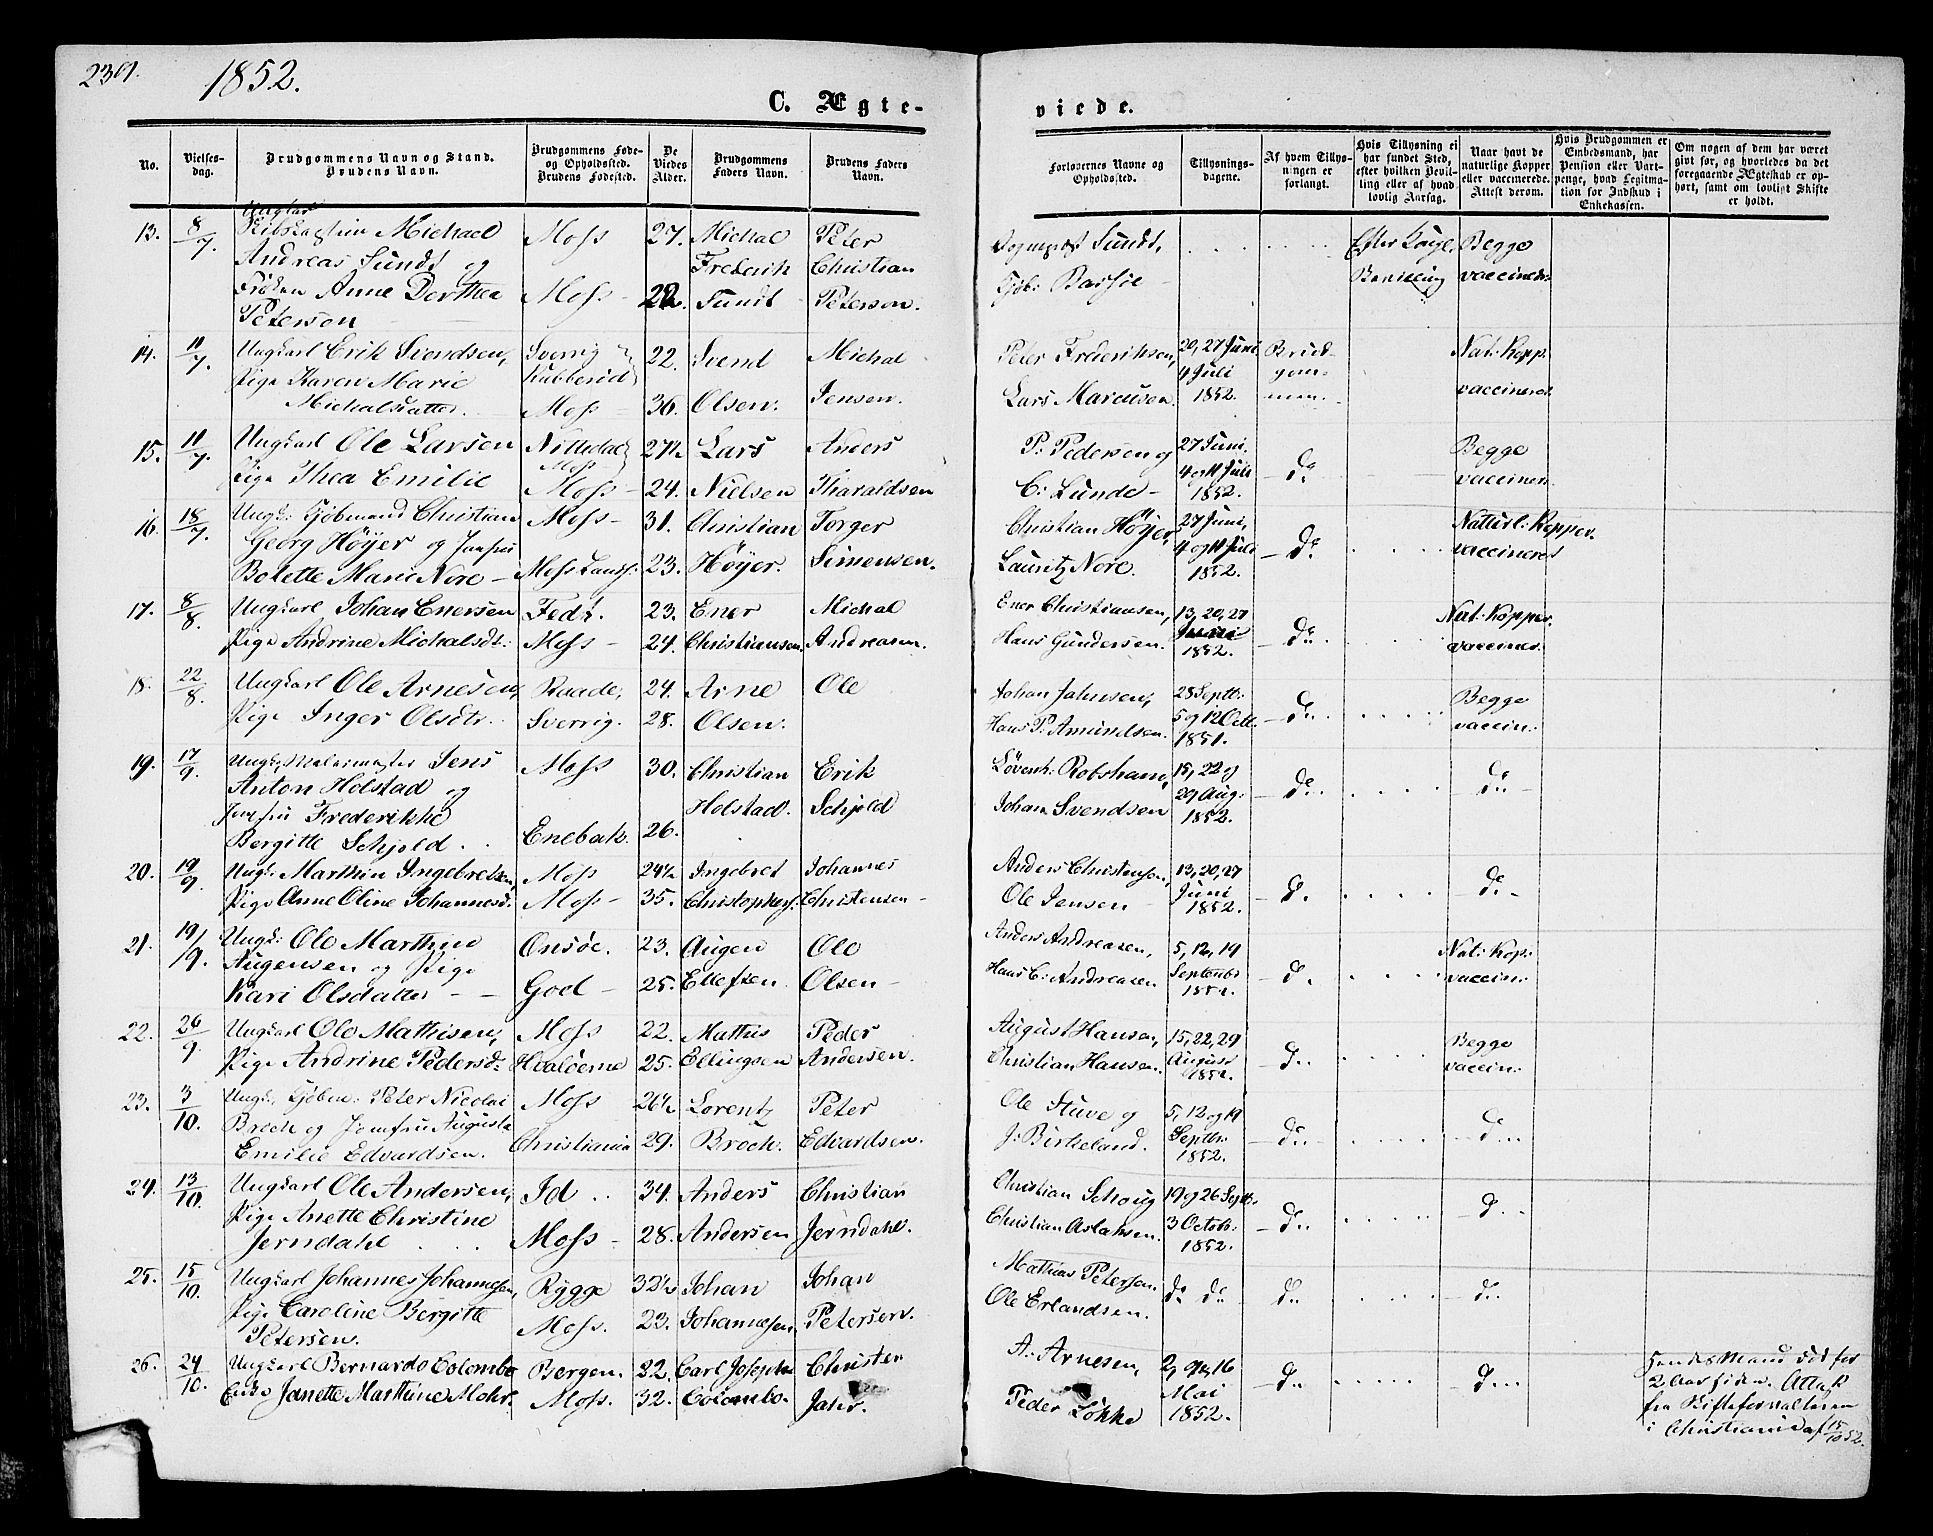 239.
1852.
C. Ægte-
viede.
No.
Vielses-
dag.
Brudgommens Navn og Stand.
Brudens Navn.
Brudgommens Føde-
og Opholdssted.
Brudens Fødested.
De
Viedes
Alder.
Brudgommens
Faders Navn.
Brudens Faders
Navn.
Forlovernes Navne og
Opholdssted.
Tillysnings-
dagene.
Af hvem Tillys-
ningen er
forlangt.
Hvis Tillysning ei
har fundet Sted,
efter hvilken Bevil-
ling eller af hvad
lovlig Aarsag.
Naar havt de
naturlige Kopper
eller vaccinerede.
Attest derom.
Hvis Brudgommen er
Embedsmand, har
Pension eller Vart-
penge, hvad Legitima-
tion for Indskud i
Enkekassen.
Om nogen af dem har været
givt før, og hvorledes da det
foregaaende Ægteskab er op-
hørt, samt om lovligt Skifte
er holdt.
13. 8/7. Michael Moss 27. Michal Peter Sundt, Efter Kongl. Begge
Andreas Sundt og Frederik Christian Bevilling vaccinered.
Frøken Anne Dorthea Moss - 22. Sundt Petersen.
Petersen
14. 11/7. Ungkarl Erik Svendsen, Sverrig 22. Svend Michal Peter Frederiksen, 20, 27 Juni Brud- Nat: Kopp.
Pige Karen Marie 4 Juli gom-
Michalsdatter. Moss - 36. Olsen. Jensen. Lars Marcusen. 1852. men. vaccineret
15. 11/7. Ungkarl Ole Larsen Nittedal 27½ Lars Anders P. Pedersen og 27 Juni. Begge
Moss 4 og 11 Juli do
Pige Thea Emilie Moss - 24. Nielsen Tharaldsen C: Lunde - 1852. vaccinered.
16. 18/7. Ungk: Kjøbmand Christian Moss - 31. Christian Torger Christian Høyer, 27 Juni, Naturl: Kopper.
Georg Høyer og Jomfru 4 og 11 Juli do vaccineret
Bolette Marie Nore - 23. Høyer. Simensen. Lauritz Nore. 1852.
17. 8/8. Ungkarl Johan Enersen 23. Ener Michal Ener Christiansen, 13, 20, 27 Nat: Kopper.
Pige Andrine Michalsdt: Moss - 24. Christiansen. Andreasen. Hans Gundersen. Juni 1852. do vaccineret
18. 22/8. Ungkarl Ole Arnesen, Raade, 24. Arne Ole Johan Jahnsen, 28 Septb: Begge
Pige Inger Olsdtr. Sverrig. 28. Olsen. Hans P. Amundsen. 5 og 12 Octb. 1851. do vaccin:
19. 17/9. Ungk. Malermester Jens Moss 30. Christian Erik 15, 22 og do
Anton Holstad og Holstad. Schjold Johan Svendsen 29 Aug: 1852. do
Jomfru Frederikke
Bergitte Schjold. Enebak. 26.
20. 19/9. Ungk. Marthin Ingebretsen, Moss 24½ Ingebret Johannes Anders Christensen, 13, 20, 27 do
Pige Anne Oline Johannesd. Moss - 35. Christophers. Christensen - Ole Jensen Juni 1852. do
21. 19/9. Ungk: Ole Marthin Onsøe. 23. Augen Ole Anders Andreasen, 5, 12, 19 Nat: Kop:
Augensen og Pige Hans C: Andreasen Septembr do vaccin:
Kari Olsdatter - - God - 25. Ellefsen Olsen - 1852.
22. 26/9. Ungkarl Ole Mathisen, Moss 22. Mathis Peder August Hansen, 15, 22, 29 Begge
Pige Andrine Pedersd: Hvaløerne 25. Ellingsen Andersen. Christian Hansen. August 1852. do vaccin:
23. 3/10. Ungk. Kjøbm: Peter Nicolai Moss 26½ Lorentz Peter Ole Stuve og 5, 12 og 19 do
Brock og Jomfru Augusta
Emilie Edvardsen. Christiania 29. Brock. Edvardsen. J: Birkeland. Septbr. 1852. do
24. 13/10. Ungkarl Ole Andersen, Id 34. Anders Christian Christian Schoug 19 og 26 Septb. do
Pige Anette Christine
Jerndahl Moss - 28. Andersen Jerndahl. Christian Aslaksen. 3 Octob. 1852. do
25. 15/10. Ungkarl Johannes Johannesen, Rygge 32½ Johan Johan Mathias Petersen. do do do do
Pige Caroline Bergitte
Petersen. Moss. 23. Johannesen. Petersen. Ole Erlandsen.
26. 24/10. Ungkarl Bernardo Colombo Bergen. 22. Carl Joseph Christen A. Arnesen, 2, 9, 16 Hendes Mand død for
Enke Janette Marthine Mohr. Moss. 32. Colombo. Jahr. Peder Løkke Mai 1852. do do 2 Aar siden. Attest
fra Skifteforvalteren
i Christiania af 15/10 52.